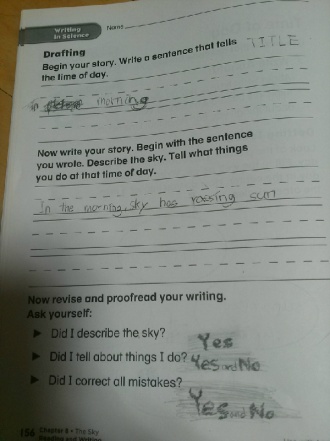 Writing
in Science
Name
Drafting
Begin your story. Write a sentence that tells TITLE
the time of day.
in morning
Now write your story. Begin with the sentence
you wrote. Describe the sky. Tell what things
you do at that time of day.
In the morning, sky has rossing sun
Now revise and proofread your writing.
Ask yourself:
▶ Did I describe the sky? Yes
▶ Did I tell about things I do? Yes and No
▶ Did I correct all mistakes?
Yes and No
156 Chapter 8 • The Sky
Reading and Writing